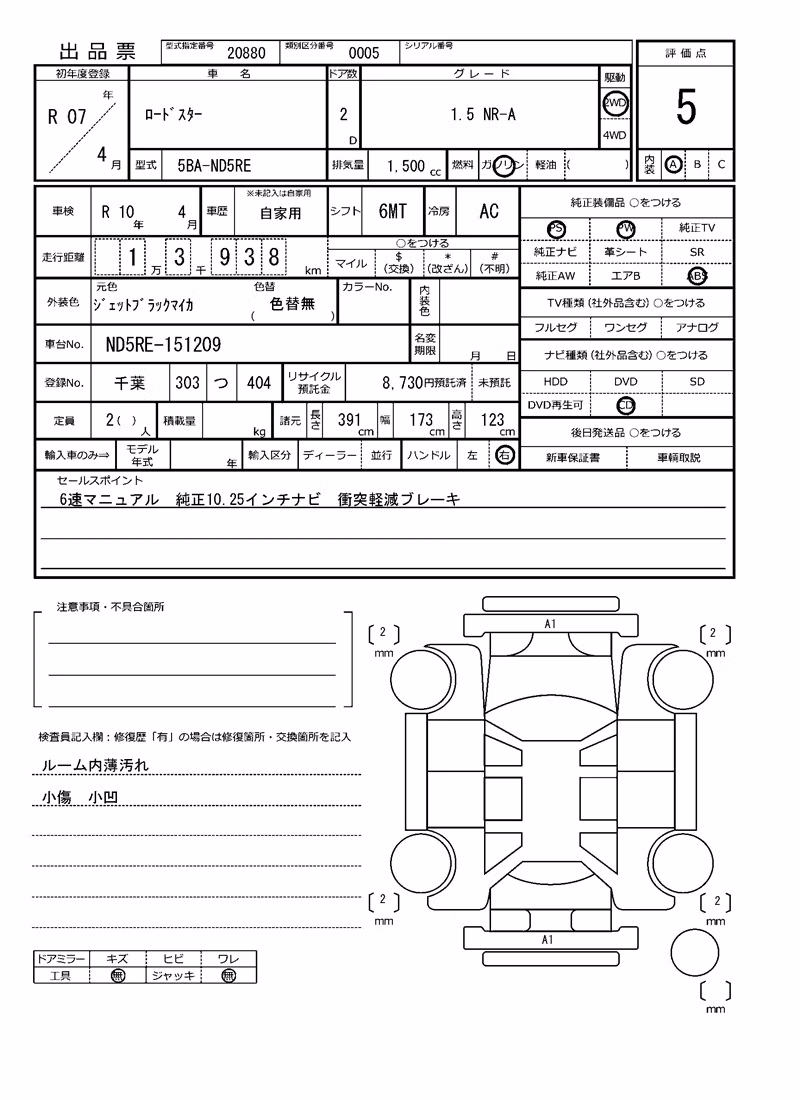 出品票 型式指定番号 20880 類別区分番号 0005 シリアル番号
評価点
初年度登録 車名 ドア数 グレード 駆動
R 07 年 4 月 ﾛｰﾄﾞｽﾀｰ 2 D 1.5 NR-A 2WD 4WD
5
型式 5BA-ND5RE 排気量 1,500 cc 燃料 ガソリン 軽油 ( )
内装 A B C
車検 R 10 年 4 月 車歴 ※未記入は自家用 自家用 シフト 6MT 冷房 AC
純正装備品 ○をつける
PS PW 純正TV
純正ナビ 革シート SR
純正AW エアB ABS
走行距離 1 万 3 千 9 3 8 km
○をつける
マイル $ (交換) * (改ざん) # (不明)
外装色 元色 ｼﾞｪｯﾄﾌﾞﾗｯｸﾏｲｶ 色替 ( 色替無 ) カラーNo. 内装色
TV種類 (社外品含む) ○をつける
フルセグ ワンセグ アナログ
車台No. ND5RE-151209 名変期限 月 日
ナビ種類 (社外品含む) ○をつける
HDD DVD SD
DVD再生可 CD
登録No. 千葉 303 つ 404 リサイクル預託金 8,730円預託済 未預託
定員 2( ) 人 積載量 kg 諸元 長さ 391 cm 幅 173 cm 高さ 123 cm
後日発送品 ○をつける
新車保証書 車輌取説
輸入車のみ⇒ モデル年式 年 輸入区分 ディーラー 並行 ハンドル 左 右
セールスポイント
6速マニュアル 純正10.25インチナビ 衝突軽減ブレーキ
注意事項・不具合箇所
A1
[ 2 ] mm
[ 2 ] mm
検査員記入欄：修復歴「有」の場合は修復箇所・交換箇所を記入
ルーム内薄汚れ
小傷 小凹
[ 2 ] mm
[ 2 ] mm
A1
[ ] mm
ドアミラー キズ ヒビ ワレ
工具 無 ジャッキ 無